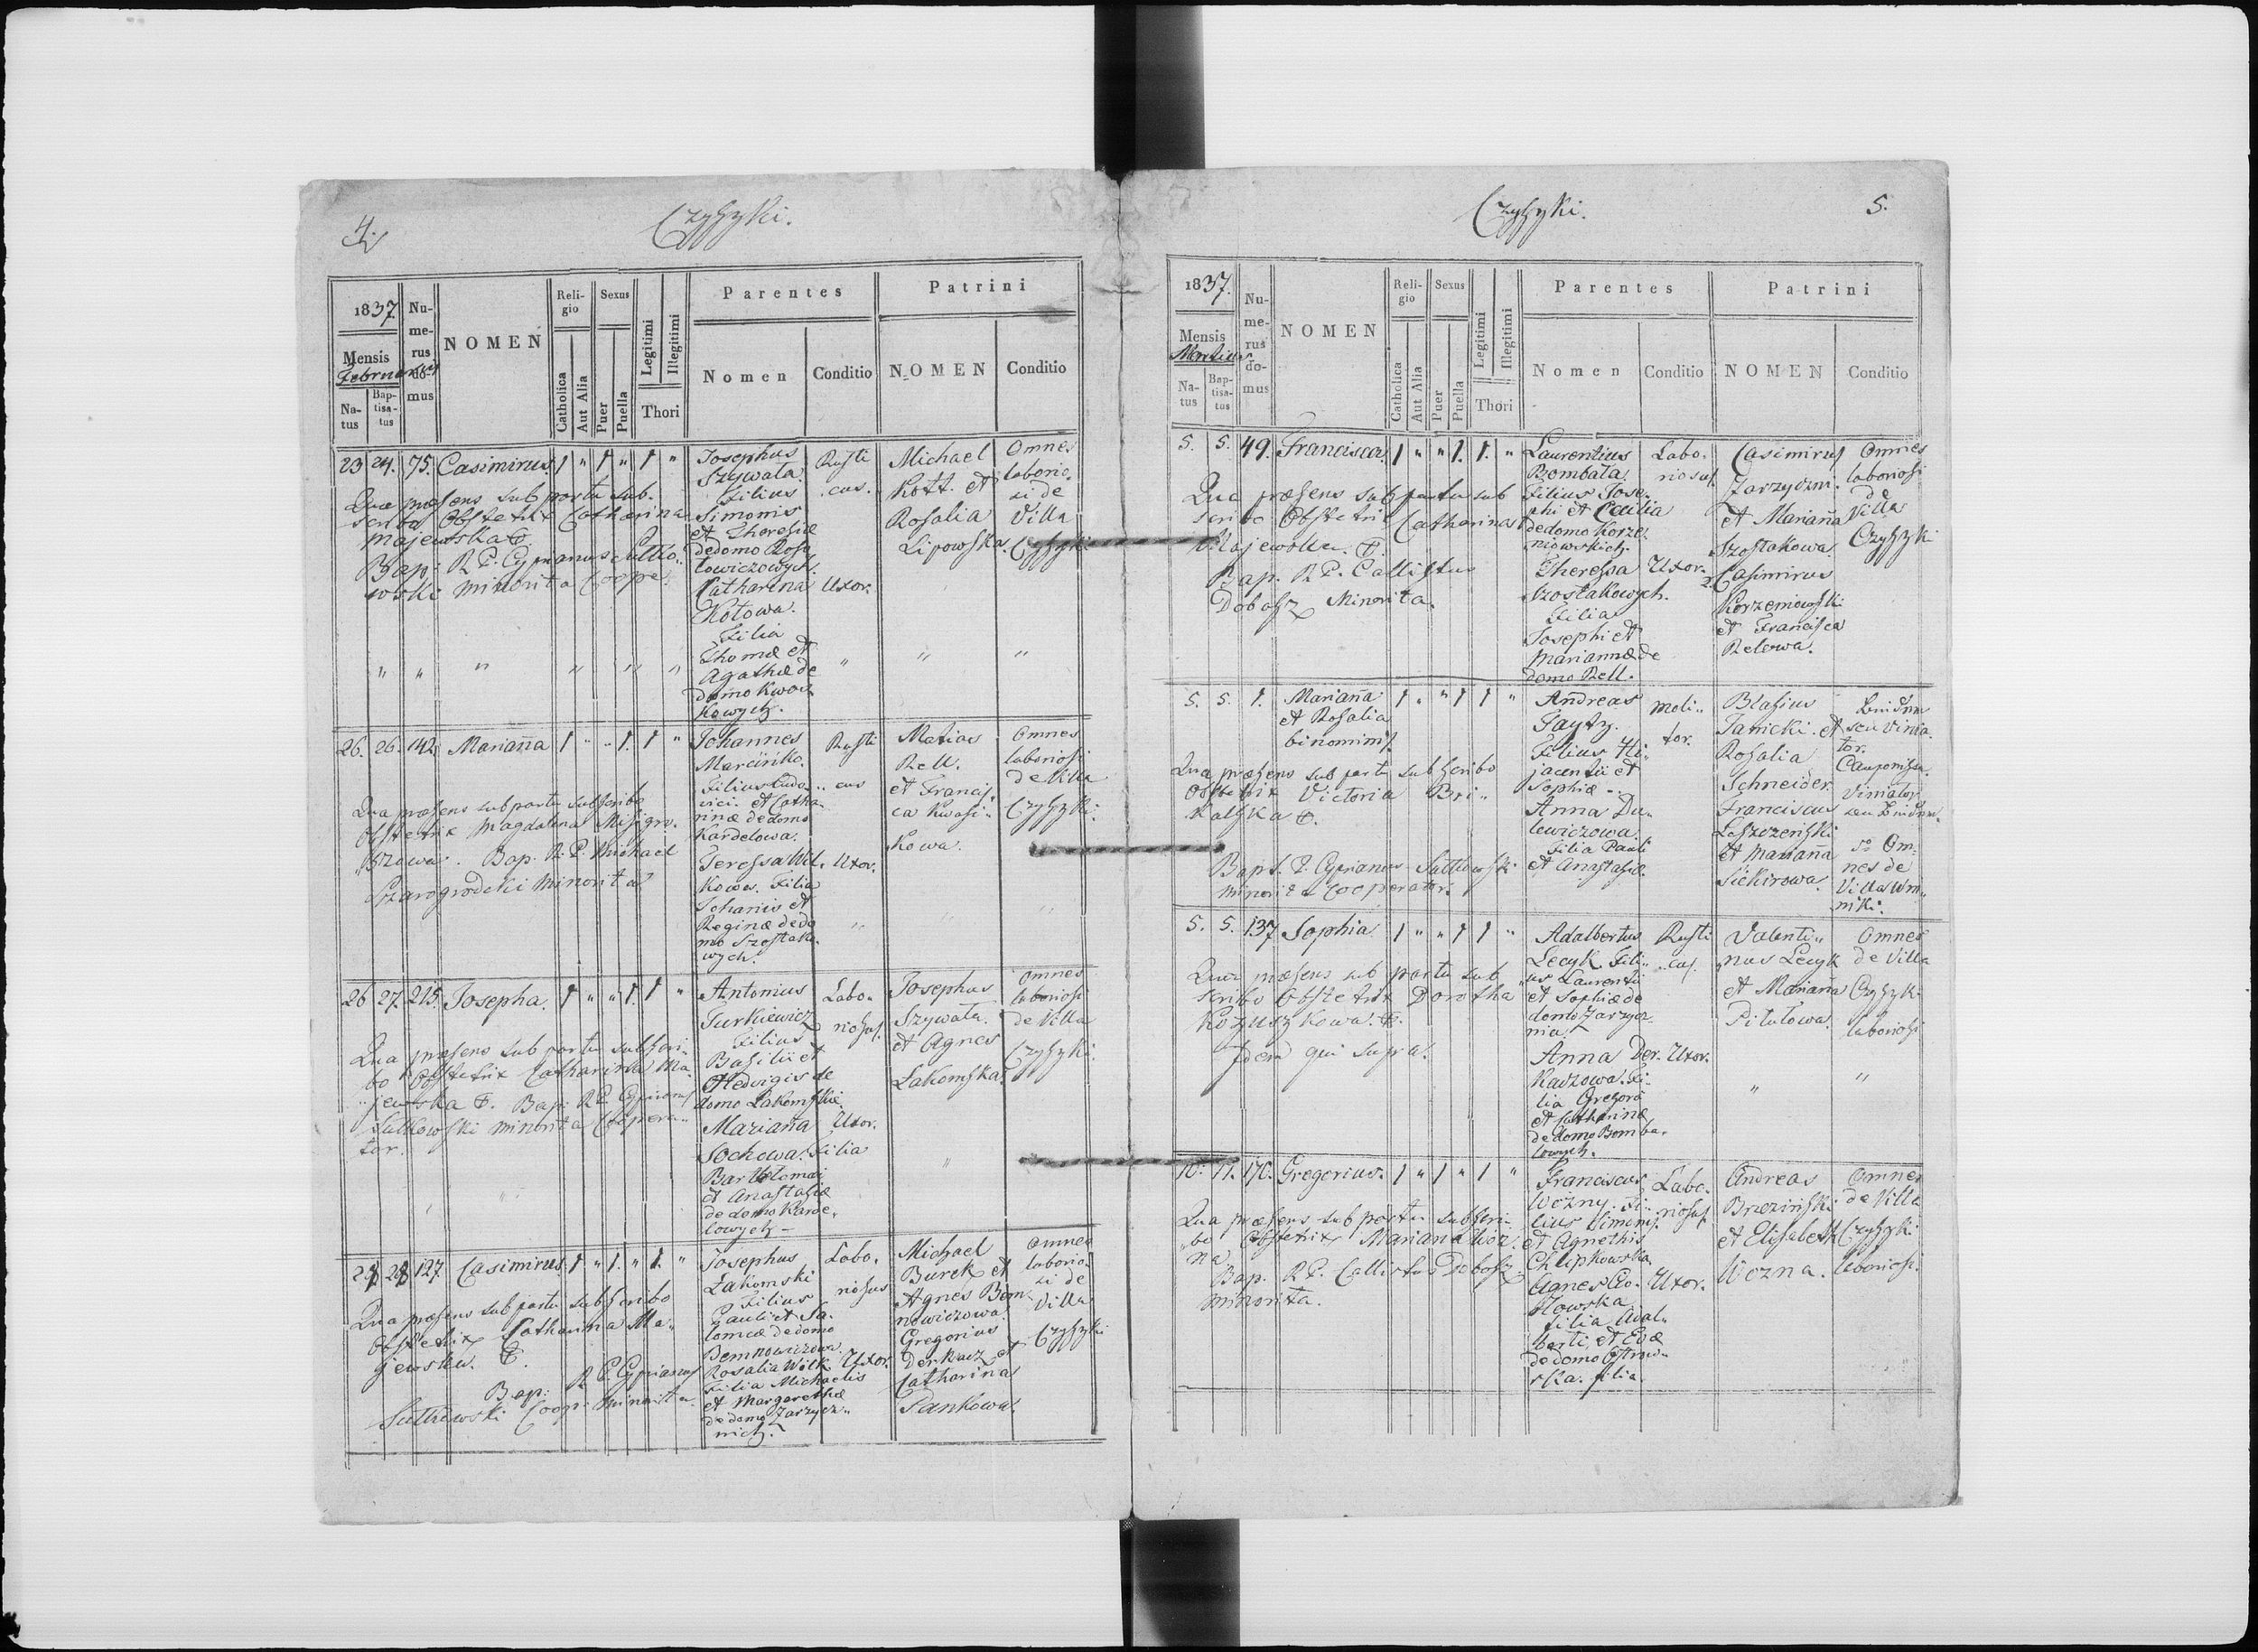 4.
Czyszyki.
1837.
Nu-
me-
rus
do-
mus
NOMEN
Reli-
gio
Sexus
Legitimi
Illegitimi
Parentes
Patrini
Mensis
Februarius
Na-
tus
Bap-
tisa-
tus
Catholica
Aut Alia
Puer
Puella
Thori
Nomen
Conditio
NOMEN
Conditio
23 24. 75. Casimirus 1 " 1 " 1 "
Qua præsens sub partu sub-
scribo Obstetrix Catharina
Majewska
Bap: R. P. Cyprianus Sutko-
wski Minorita Cooper.
Josephus
Szywała.
Filius
Simonis
et Theresiæ
de domo
Catharina
Kotowa.
Filia
Thomæ et
Agathæ de
domo Kwas
kowych.
Rusti
cus.
Uxor.
Michael
Kott. et
Rosalia
Lipowska.
Omnes
laborio-
si de
Villa
Czyszyki
26. 26. 142. Marianna 1 " " 1. 1 "
Qua præsens sub partu subscribo
Obstetrix Magdalena
Bap. R. P. Michael
Szarogrodzki Minorita
Johannes
Marcinko.
Filius Ludo-
vici. et Catha-
rinæ de domo
Kardelowa.
Teressa Wil-
kowa. Filia
Johanis et
Reginæ de do
mo Szostako-
wych.
Rusti
cus
Uxor.
Matias
Rell.
et Francis-
ca Kwasi-
kowa.
Omnes
laboriosi
de Villa
Czyszyki.
26 27. 215. Josepha. 1 " " 1. 1 "
Qua præsens sub partu subscri-
bo Obstetrix Catharina Ma-
jewska Bap: R P. Cyprianus
Sutkowski Minorita Coopera-
tor.
Antonius
Turkiewicz
Filius
Basilii et
Hedvigis de
domo Łakomskie
Marianna
Sochowa. Filia
Bartholomæi
et Anastasiæ
de domo Karde-
lowych
Labo-
riosus.
Uxor.
Josephus
Szywała.
et Agnes
Łakomska.
Omnes
laboriosi
de Villa
Czyszyki.
27 28 127. Casimirus 1 " 1. " 1. "
Qua præsens sub partu subscribo
Obstetrix Catharina Ma-
jewska.
Bap: R P. Cyprianus
Sutkowski Coop. Minorita
Josephus
Łakomski
Filius
Pauli et Sa-
lomeæ de domo
Rosalia Wilk
Filia Michaelis
et Margarethæ
de domo Zarzycz-
nich.
Labo-
riosus
Uxor.
Michael
Burek et
Agnes Bem-
nowiczowa
Gregorius
Derkacz et
Catharina
Pankowa.
Omnes
laborio-
si de
Villa
Czyszyki
Czyszyki.
5.
1837.
Nu-
me-
rus
do-
mus
NOMEN
Reli-
gio
Sexus
Legitimi
Illegitimi
Parentes
Patrini
Mensis
Martius
Na-
tus
Bap-
tisa-
tus
Catholica
Aut Alia
Puer
Puella
Thori
Nomen
Conditio
NOMEN
Conditio
5. 5. 49. Francisca. 1 " " 1. 1. "
Qua præsens sub partu sub
scribo Obstetrix Catharina
Majewska.
Bap. R P. Callistus
Dobosz Minorita.
Laurentius
Bombała.
Filius Jose-
phi et Cæcilia
de domo Korze-
niowskich.
Theressa
Szostakowych.
Filia
Josephi et
Mariannæ de
domo Rell.
Labo-
riosus.
Uxor.
Casimirus
Zarzyczni.
et Marianna
Szostakowa.
2. Casimirus
Korzeniowski
et Francisca
Relowa.
Omnes
laboriosi
de
Villa
Czyszyki
5. 5. 1. Marianna 1 " " 1 1 "
et Rosalia
binominis.
Qua præsens sub partu subscribo
Obstetrix Victoria Bri-
kalska
Bapt. P. Cyprianus Sutkowski
Minorita Cooperator.
Andreas
Filius Hi-
jacentii et
Sophiæ
Anna Du-
lewiczowa.
Filia Pauli
et Anastasiæ.
Moli-
tor.
Blasius
Janicki. et
Rosalia
Schneider.
Franciscus
Leszczeński
et Marianna
Siekirowa.
Omnes de
Villa
5. 5. 137. Sophia 1 " " 1 1 "
Qua præsens sub partu sub
scribo Obstetrix Dorotha
Kozuszkowa.
Idem qui supra.
Adalbertus
Lecyk. Fili-
us Laurentii
et Sophiæ de
domo Zarzycz-
nia.
Anna Der-
kaczowa. Fi-
lia Gregorii
et Catharinæ
de domo Bomba-
lowych.
Rusti
cus.
Uxor.
Valenti-
nus Lecyk
et Marianna
Pitulowa.
Omnes
de Villa
Czyszyki
laboriosi
10. 11. 170. Gregorius. 1 " 1 " 1 "
Qua præsens sub partu subscri-
bo Obstetrix Mariana Woz-
na.
Bap. R P. Callistus Dobosz
Minorita.
Franciscus
Wozny. Fi-
lius Simonis.
et Agnethis
Chlipkowska
Agnes Co-
złowska
filia Adal-
berti, et Evæ
de domo Ostrow-
ska. filia.
Labo-
riosus
Uxor.
Andreas
Brzeziński.
et Elisabeth
Wozna.
Omnes
de Villa
Czyszyki
laboriosi.